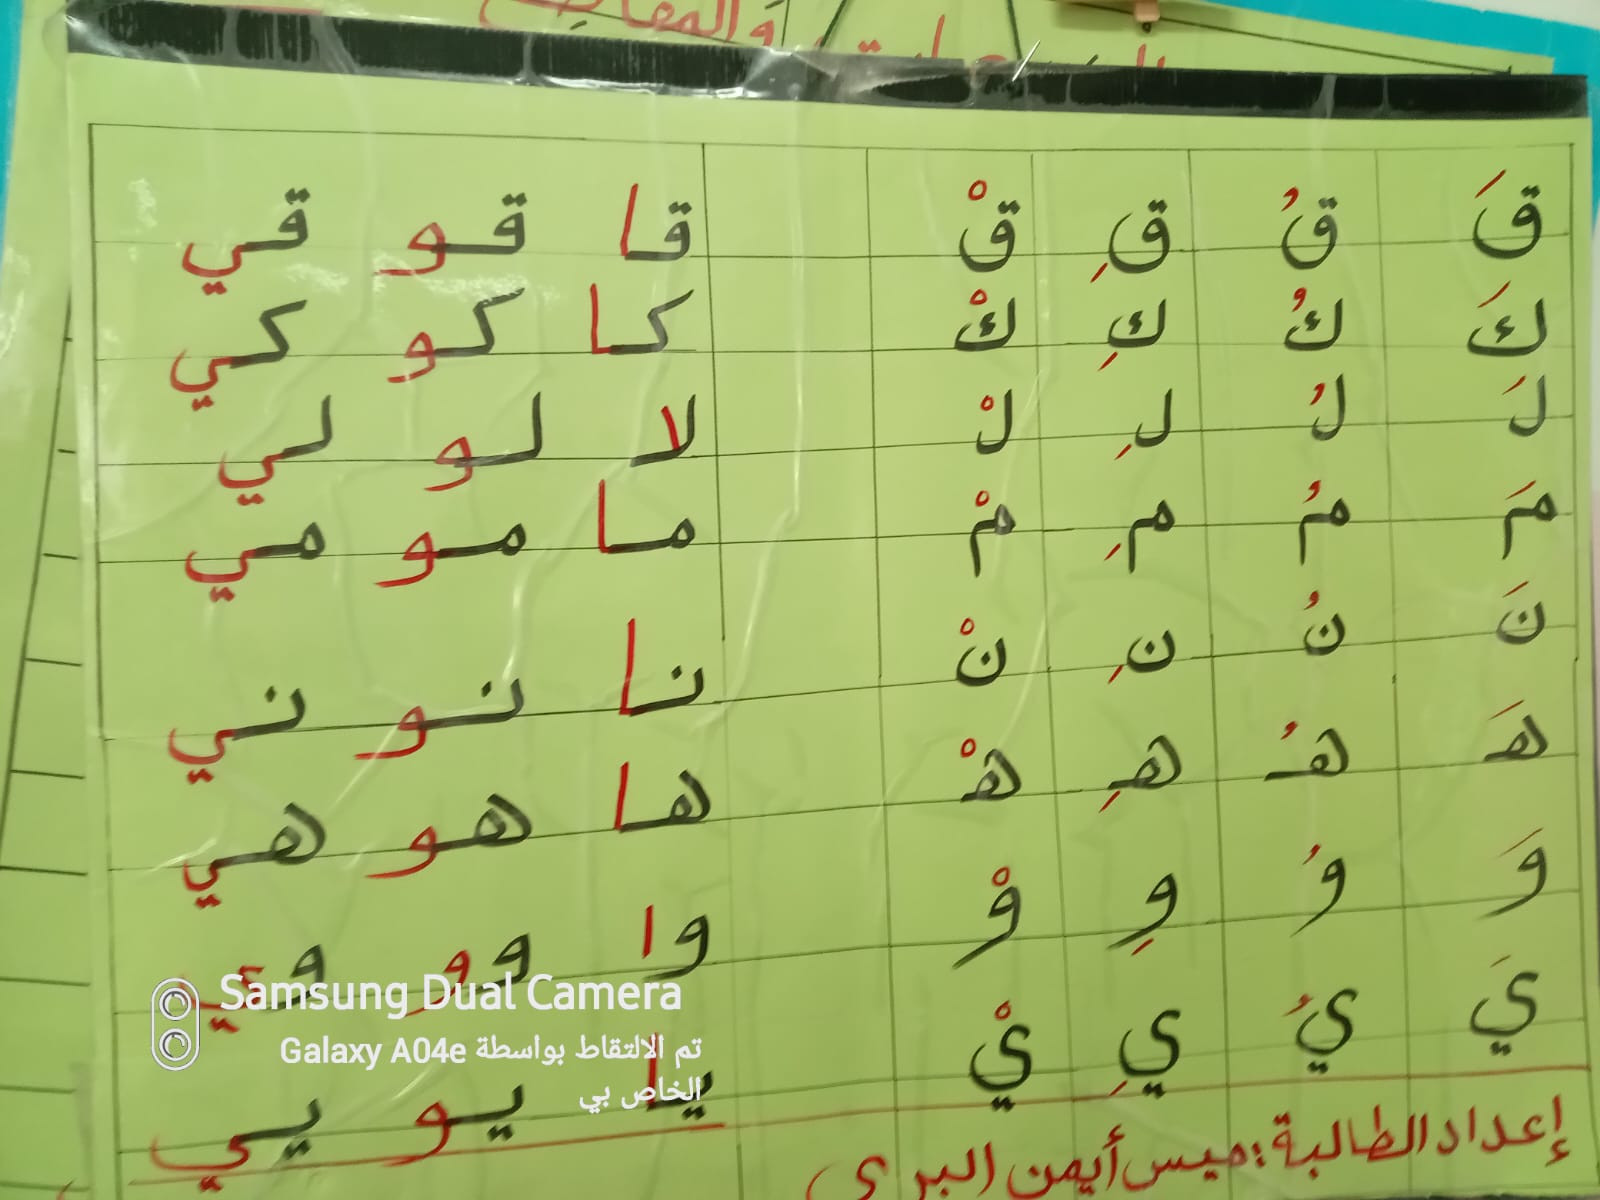 والمقاطع
قَ قُ قِ قْ قا قو قي
كَ كُ كِ كْ كا كو كي
لَ لُ لِ لْ لا لو لي
مَ مُ مِ مْ ما مو مي
نَ نُ نِ نْ نا نو ني
هَـ هُـ هِـ هْـ ها هو هي
وَ وُ وِ وْ وا وو وي
يَ يُ يِ يْ يا يو يي
إعداد الطالبة: ميس أيمن البري
Samsung Dual Camera
تم الالتقاط بواسطة Galaxy A04e
الخاص بي